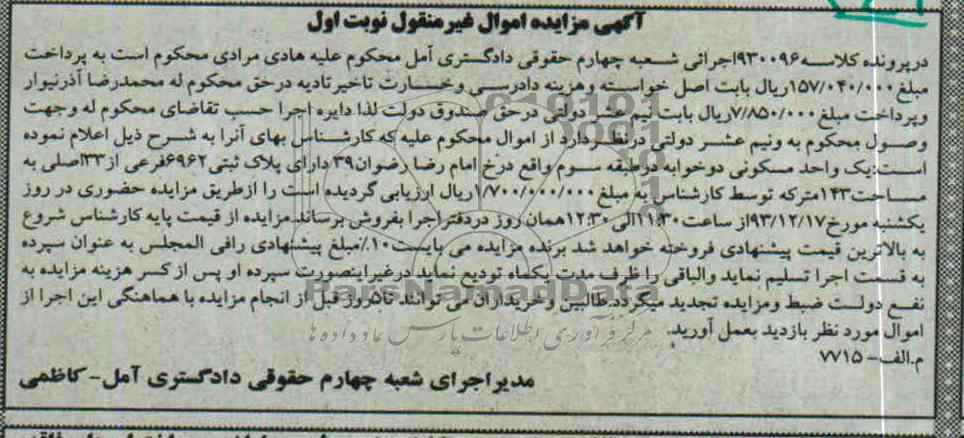 آگهی مزایده اموال غیرمنقول نوبت اول
درپرونده کلاسه۹۳۰۰۹۶اجرائی شعبه چهارم حقوقی دادگستری آمل محکوم علیه هادی مرادی محکوم است به پرداخت
مبلغ۱۵۷/۰۴۰/۰۰۰ریال بابت اصل خواسته وهزینه دادرسی وخسارت تاخیرتادیه درحق محکوم له محمدرضا آذرنیوار
وپرداخت مبلغ۷/۸۵۰/۰۰۰ریال بابت نیم عشر دولتی درحق صندوق دولت لذا دایره اجرا حسب تقاضای محکوم له وجهت
وصول محکوم به ونیم عشر دولتی درنظردارد از اموال محکوم علیه که کارشناس بهای آنرا به شرح ذیل اعلام نموده
است:یک واحد مسکونی دوخوابه درطبقه سوم واقع درخ امام رضا رضوان۳۹ دارای پلاک ثبتی۶۹۶۲فرعی از۳۳اصلی به
مساحت۱۴۳مترکه توسط کارشناس به مبلغ۱/۷۰۰/۰۰۰/۰۰۰ریال ارزیابی گردیده است را ازطریق مزایده حضوری در روز
یکشنبه مورخ۹۳/۱۲/۱۷از ساعت۱۱:۳۰الی۱۲:۳۰همان روز دردفتراجرا بفروش برساند.مزایده از قیمت پایه کارشناس شروع
به بالاترین قیمت پیشنهادی فروخته خواهد شد برنده مزایده می بایست۱۰٪مبلغ پیشنهادی رافی المجلس به عنوان سپرده
به قسمت اجرا تسلیم نماید والباقی را ظرف مدت یکماه تودیع نماید درغیراینصورت سپرده او پس ازکسر هزینه مزایده به
نفع دولت ضبط ومزایده تجدید میگردد.طالبین وخریداران می توانند تا۵روز قبل از انجام مزایده با هماهنگی این اجرا از
اموال مورد نظر بازدید بعمل آورید.
م.الف- ۷۷۱۵
مدیراجرای شعبه چهارم حقوقی دادگستری آمل- کاظمی
ParsNamadData
مرکز فرآوری اطلاعات پارس نماد داده ها